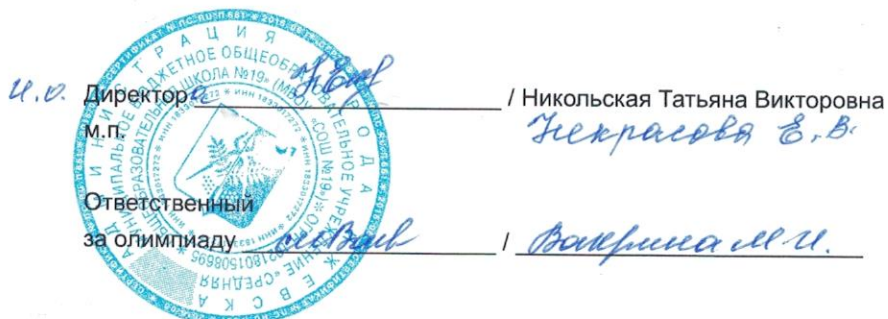 и.о. Директора / Никольская Татьяна Викторовна
м.п. Некрасова Е.В.
Ответственный
за олимпиаду /
АДМИНИСТРАЦИЯ ГОРОДА ИЖЕВСКА
МУНИЦИПАЛЬНОЕ БЮДЖЕТНОЕ ОБЩЕОБРАЗОВАТЕЛЬНОЕ УЧРЕЖДЕНИЕ «СРЕДНЯЯ
ОБЩЕОБРАЗОВАТЕЛЬНАЯ ШКОЛА №19» (МБОУ «СОШ №19»)
ИНН 1833017272